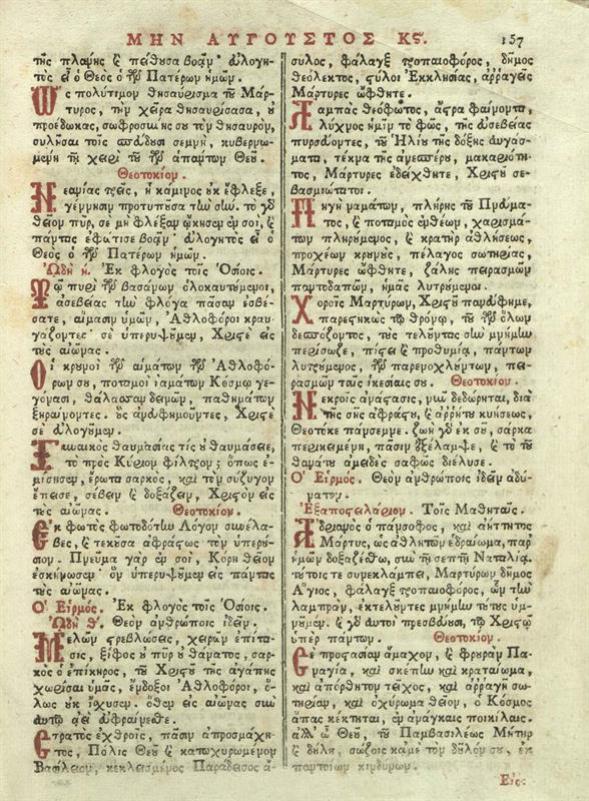 ΜΗΝ ΑΥΓΟΥΣΤΟΣ Κϛ. 157
τῆς πλάνης ϗ πείθουσα βοᾷν· εὐλογη-
τὸς εἶ ὁ Θεὸς ὁ τῶν Πατέρων ἡμῶν.
Ὡς πολύτιμον θησαύρισμα τοῦ Μάρ-
τυρος, τὴν χεῖρα θησαυρίσασα, οὐ
προέδωκας, σωφροσύνης σου τὸν θησαυρὸν,
συλῆσαι τοῖς σεμνὴ, κυβερνω-
μένη τῇ χειρὶ τοῦ τῶν ἁπάντων Θεοῦ.
Θεοτοκίον.
Νεανίας τρεῖς, ἡ κάμινος οὐκ ἔφλεξε,
γέννησιν προτυποῦσα τὴν σήν. τὸ γὰρ
θεῖον πῦρ, σὲ μὴ φλέξαν ᾤκησεν ἐν σοὶ, ϗ
πάντας ἐφώτισε βοᾷν· εὐλογητὸς εἶ ὁ
Θεὸς ὁ τῶν Πατέρων ἡμῶν.
ᾨδὴ η. Ἐκ φλογὸς τοῖς Ὁσίοις.
Τῷ πυρὶ τῶν βασάνων ὁλοκαυτούμενοι,
ἀσεβείας τὴν φλόγα πᾶσαν ἐσβέ-
σατε, αἵμασιν ὑμῶν, Ἀθλοφόροι κραυ-
γάζοντες· σὲ ὑπερυψοῦμεν, Χριστὲ εἰς
τοὺς αἰῶνας.
Οἱ κρουνοὶ τῶν αἱμάτων τῶν Ἀθλοφό-
ρων σου, ποταμοὶ ἰαμάτων Κόσμῳ γε-
γόνασι, θάλασσαν δεινῶν, παθημάτων
ξηραίνοντες. οὓς ἀνευφημοῦντες, Χριστὲ
σὲ εὐλογοῦμεν.
Γυναικὸς θαυμασίας τίς οὐ θαυμάσειε,
τὸ πρὸς Κύριον φίλτρον; ὅπως ἐ-
μίσησεν, ἔρωτα σαρκὸς, καὶ τὸν σύζυγον
ἔπεισε, σέβειν ϗ δοξάζειν, Χριστὸν εἰς
τοὺς αἰῶνας. Θεοτοκίον.
Ἐκ φωτὸς φωτοδότην Λόγον συνέλα-
βες, ϗ τεκοῦσα ἀφράστως τὸν ὑπερού-
σιον. Πνεῦμα γὰρ ἐν σοὶ, Κόρη θεῖον
ἐσκήνωσεν· ὃν ὑπερυψοῦμεν εἰς πάντας
τοὺς αἰῶνας.
Ὁ Εἱρμός. Ἐκ φλογὸς τοῖς Ὁσίοις.
ᾨδὴ θ. Θεὸν ἀνθρώποις ἰδεῖν.
Μελῶν στρεβλώσεις, χειρῶν ἐπίτα-
σις, ξίφος οὐ πῦρ οὐ θάνατος, σαρ-
κὸς ὁ ἐπίκηρος, τοῦ Χριστοῦ τῆς ἀγάπης
χωρίσαι ὑμᾶς, ἔνδοξοι Ἀθλοφόροι, ὅ-
λως οὐκ ἴσχυσεν. ὅθεν εἰς αἰῶνας σὺν
αὐτῷ ἀεὶ εὐφραίνεσθε.
Στρατὸς ἐχθροῖς, πᾶσιν ἀπροσμάχη-
τος, Πόλις Θεοῦ ϗ κατωχυρωμένον
Βασίλειον, κεκλεισμένος Παράδεισος ἀ-
σύλος, φάλαγξ τροπαιοφόρος, δῆμος
θεόλεκτος, στύλοι Ἐκκλησίας, ἀῤῥαγεῖς
Μάρτυρες ὤφθητε.
Λαμπὰς θεόφωτος, ἄστρα φαίνοντα,
λύχνος ἡμῖν τὸ φῶς, τῆς εὐσεβείας
πυρσεύοντες, τοῦ Ἡλίου τῆς δόξης αὐγάσ-
ματα, τέκνα τῆς ἀνεσπέρου, μακαριότη-
τος, Μάρτυρες ἐδείχθητε, Χριστοῦ σε-
βασμιώτατοι.
Πηγὴ ναμάτων, πλήρης τοῦ Πνεύμα-
τος, ϗ ποταμὸς ἐνθέων, χαρισμά-
των πληρούμενος, ϗ κρατὴρ ἀθλήσεως,
προχέων κρουνοὺς, πέλαγος σωτηρίας,
Μάρτυρες ὤφθητε, ζάλης πειρασμῶν
παντοδαπῶν, ἡμᾶς λυτρούμενοι.
Χοροῖς Μαρτύρων, Χριστοῦ πανεύφημε,
παρεστηκὼς τῷ θρόνῳ, τοῦ τῶν ὅλων
δεσπόζοντος, τοὺς τελοῦντας σὴν μνήμην
περίσωζε, πίστει ϗ προθυμίᾳ, πάντων
λυτρούμενος, τῶν παρενοχλούντων, πει-
ρασμῶν ταῖς ἱκεσίαις σου. Θεοτοκίον.
Νεκροῖς ἀνάστασις, νῦν δεδώρηται, διὰ
τῆς σῆς ἀφράστου, ϗ ἀῤῥήτου κυήσεως,
Θεοτόκε πάνσεμνε. ζωὴ γὰρ ἐκ σοῦ, σάρκα
περικειμένη, πᾶσιν ἐξέλαμψε, ϗ τὸ τοῦ
θανάτου ἀμειδὲς σαφῶς διέλυσε.
Ὁ Εἱρμός. Θεὸν ἀνθρώποις ἰδεῖν ἀδύ-
νατον.
Ἐξαποστειλάριον. Τοῖς Μαθηταῖς.
Ἀδριανὸς ὁ πάνσοφος, καὶ ἀήττητος
Μάρτυς, ὡς ἀθλητῶν ἑδραίωμα, παρ
ἡμῶν δοξαζέσθω, σὺν τῇ σεπτῇ Ναταλίᾳ.
τούτοις τε συνεκλάμπει, Μαρτύρων δῆμος
Ἅγιος, φάλαγξ τροπαιοφόρος, ὧν τὴν
λαμπρὰν, ἐκτελοῦντες μνήμην τούτους ὑμ-
νοῦμεν. ϗ γὰρ αὐτοὶ πρεσβεύουσι, τῷ Χριστῷ
ὑπὲρ πάντων. Θεοτοκίον.
Σὲ προστασίαν ἄμαχον, ϗ φρουρὰν Πα-
ναγία, καὶ σκέπην καὶ κραταίωμα,
καὶ ἀπόρθητον τεῖχος, καὶ ἀῤῥαγῆ σω-
τηρίαν, καὶ ὀχύρωμα θεῖον, ὁ Κόσμος
ἅπας κέκτηται, ἐν ἀνάγκαις ποικίλαις.
ἀλλ' ὦ Θεοῦ, τοῦ Παμβασιλέως Μῆτηρ
ϗ δούλη, σώζοις κᾀμὲ τὸν δοῦλόν σου, ἐκ
παντοίων κινδύνων.
Εἰς